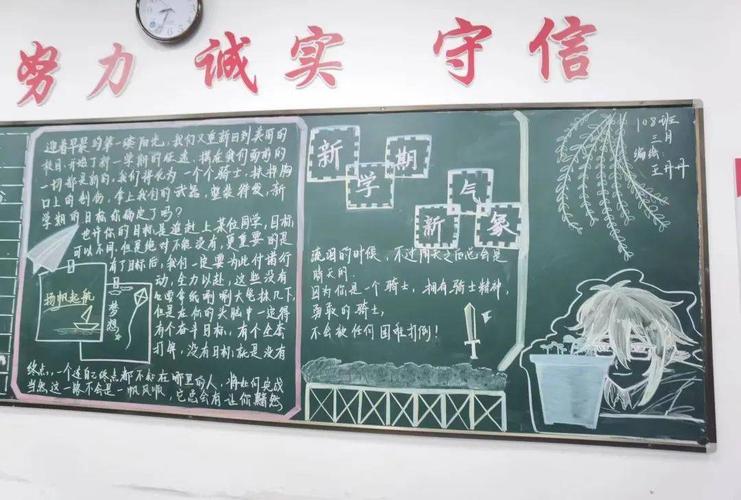 努力 诚实 守信
迎着早晨的第一缕阳光，我们又重新回到美丽的
校园，开始了新一学期的征途。摆在我们面前的
一切都是新的，我们将化为一个个骑士，抹掉胸
口上的创伤，拿上我们的武器，整装待发，新
学期的目标你确定了吗？
也许你的目标是追赶上某位同学，目标
可以不同，但是绝对不能没有，更重要的是
有了目标后，我们一定要为此付诸行
动，全力以赴，这些没有
但是在你的头脑中一定得
有个奋斗目标，有个全套
打算，没有目标，就是没有
终点，一个连自己终点都不知在哪里的人，
当然这一路不会是一帆风顺，它总会有让你黯然
扬帆起航
梦想
新学期
新气象
流泪的时候，不过阴天之后总会是
晴天的。
因为你是一个骑士，拥有骑士精神，
勇敢的骑士，
不会被任何困难打倒！
108班
三月
编辑
王丹丹